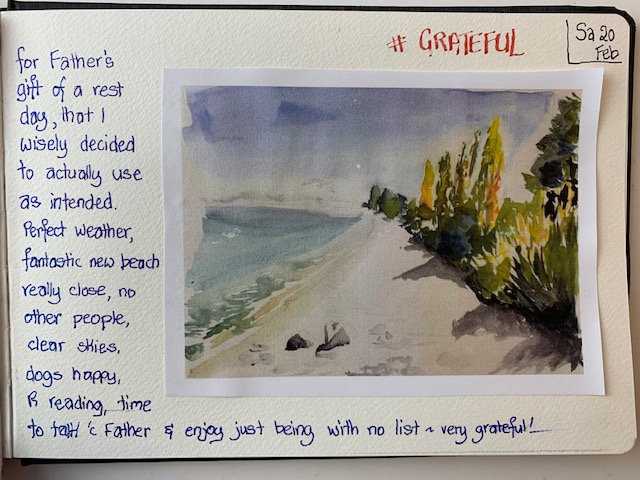 # GRATEFUL
Sa 20
Feb
for Father's
gift of a rest
day, that I
wisely decided
to actually use
as intended.
Perfect weather,
fantastic new beach
really close, no
other people,
clear skies,
dogs happy,
R reading, time
to talk 'c Father & enjoy just being with no list ~ very grateful!